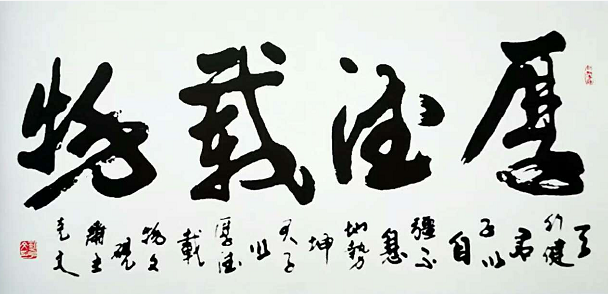 厚德載物
天行健君子以自疆不息地勢坤君子以厚德載物文硯齋主克文